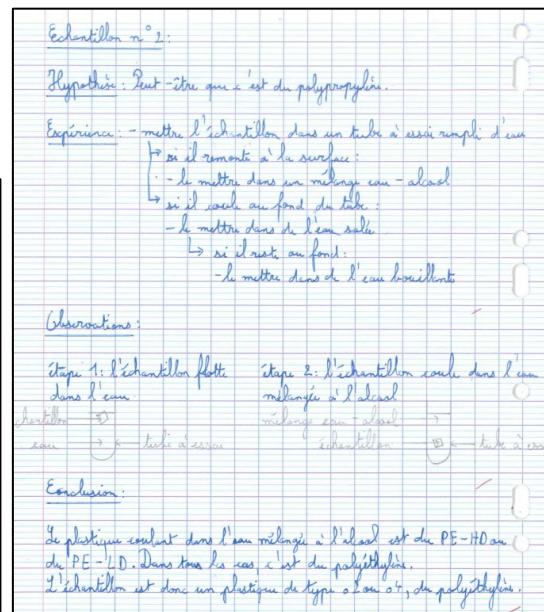 Echantillon n° 2:
Hypothèse: Peut-être que c'est du polypropylène.
Expérience: - mettre l'échantillon dans un tube à essai rempli d'eau
↳ si il remonte à la surface:
- le mettre dans un mélange eau - alcool
↳ si il coule au fond du tube:
- le mettre dans de l'eau salée
↳ si il reste au fond:
- le mettre dans de l'eau bouillante
Observations:
étape 1: l'échantillon flotte
dans l'eau
chantillon
eau
tube à essai
étape 2: l'échantillon coule dans l'eau
mélangée à l'alcool
mélange eau-alcool
échantillon
tube à ess
Conclusion:
Le plastique coulant dans l'eau mélangée à l'alcool est du PE-HD ou
du PE-LD. Dans tous les cas, c'est du polyéthylène.
L'échantillon est donc un plastique de type 02 ou 04, du polyéthylène.